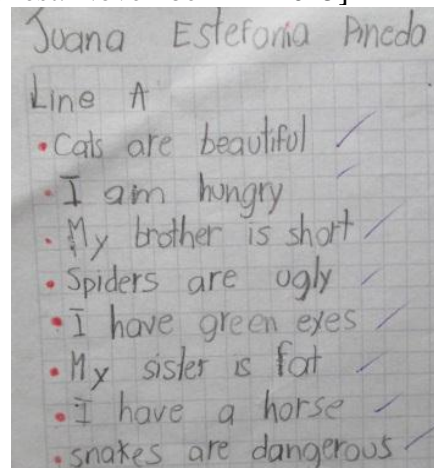 Juana Estefania Pineda
Line A
• Cats are beautiful ✓
• I am hungry ✓
• My brother is short ✓
• Spiders are ugly ✓
• I have green eyes ✓
• My sister is fat ✓
• I have a horse ✓
• snakes are dangerous ✓